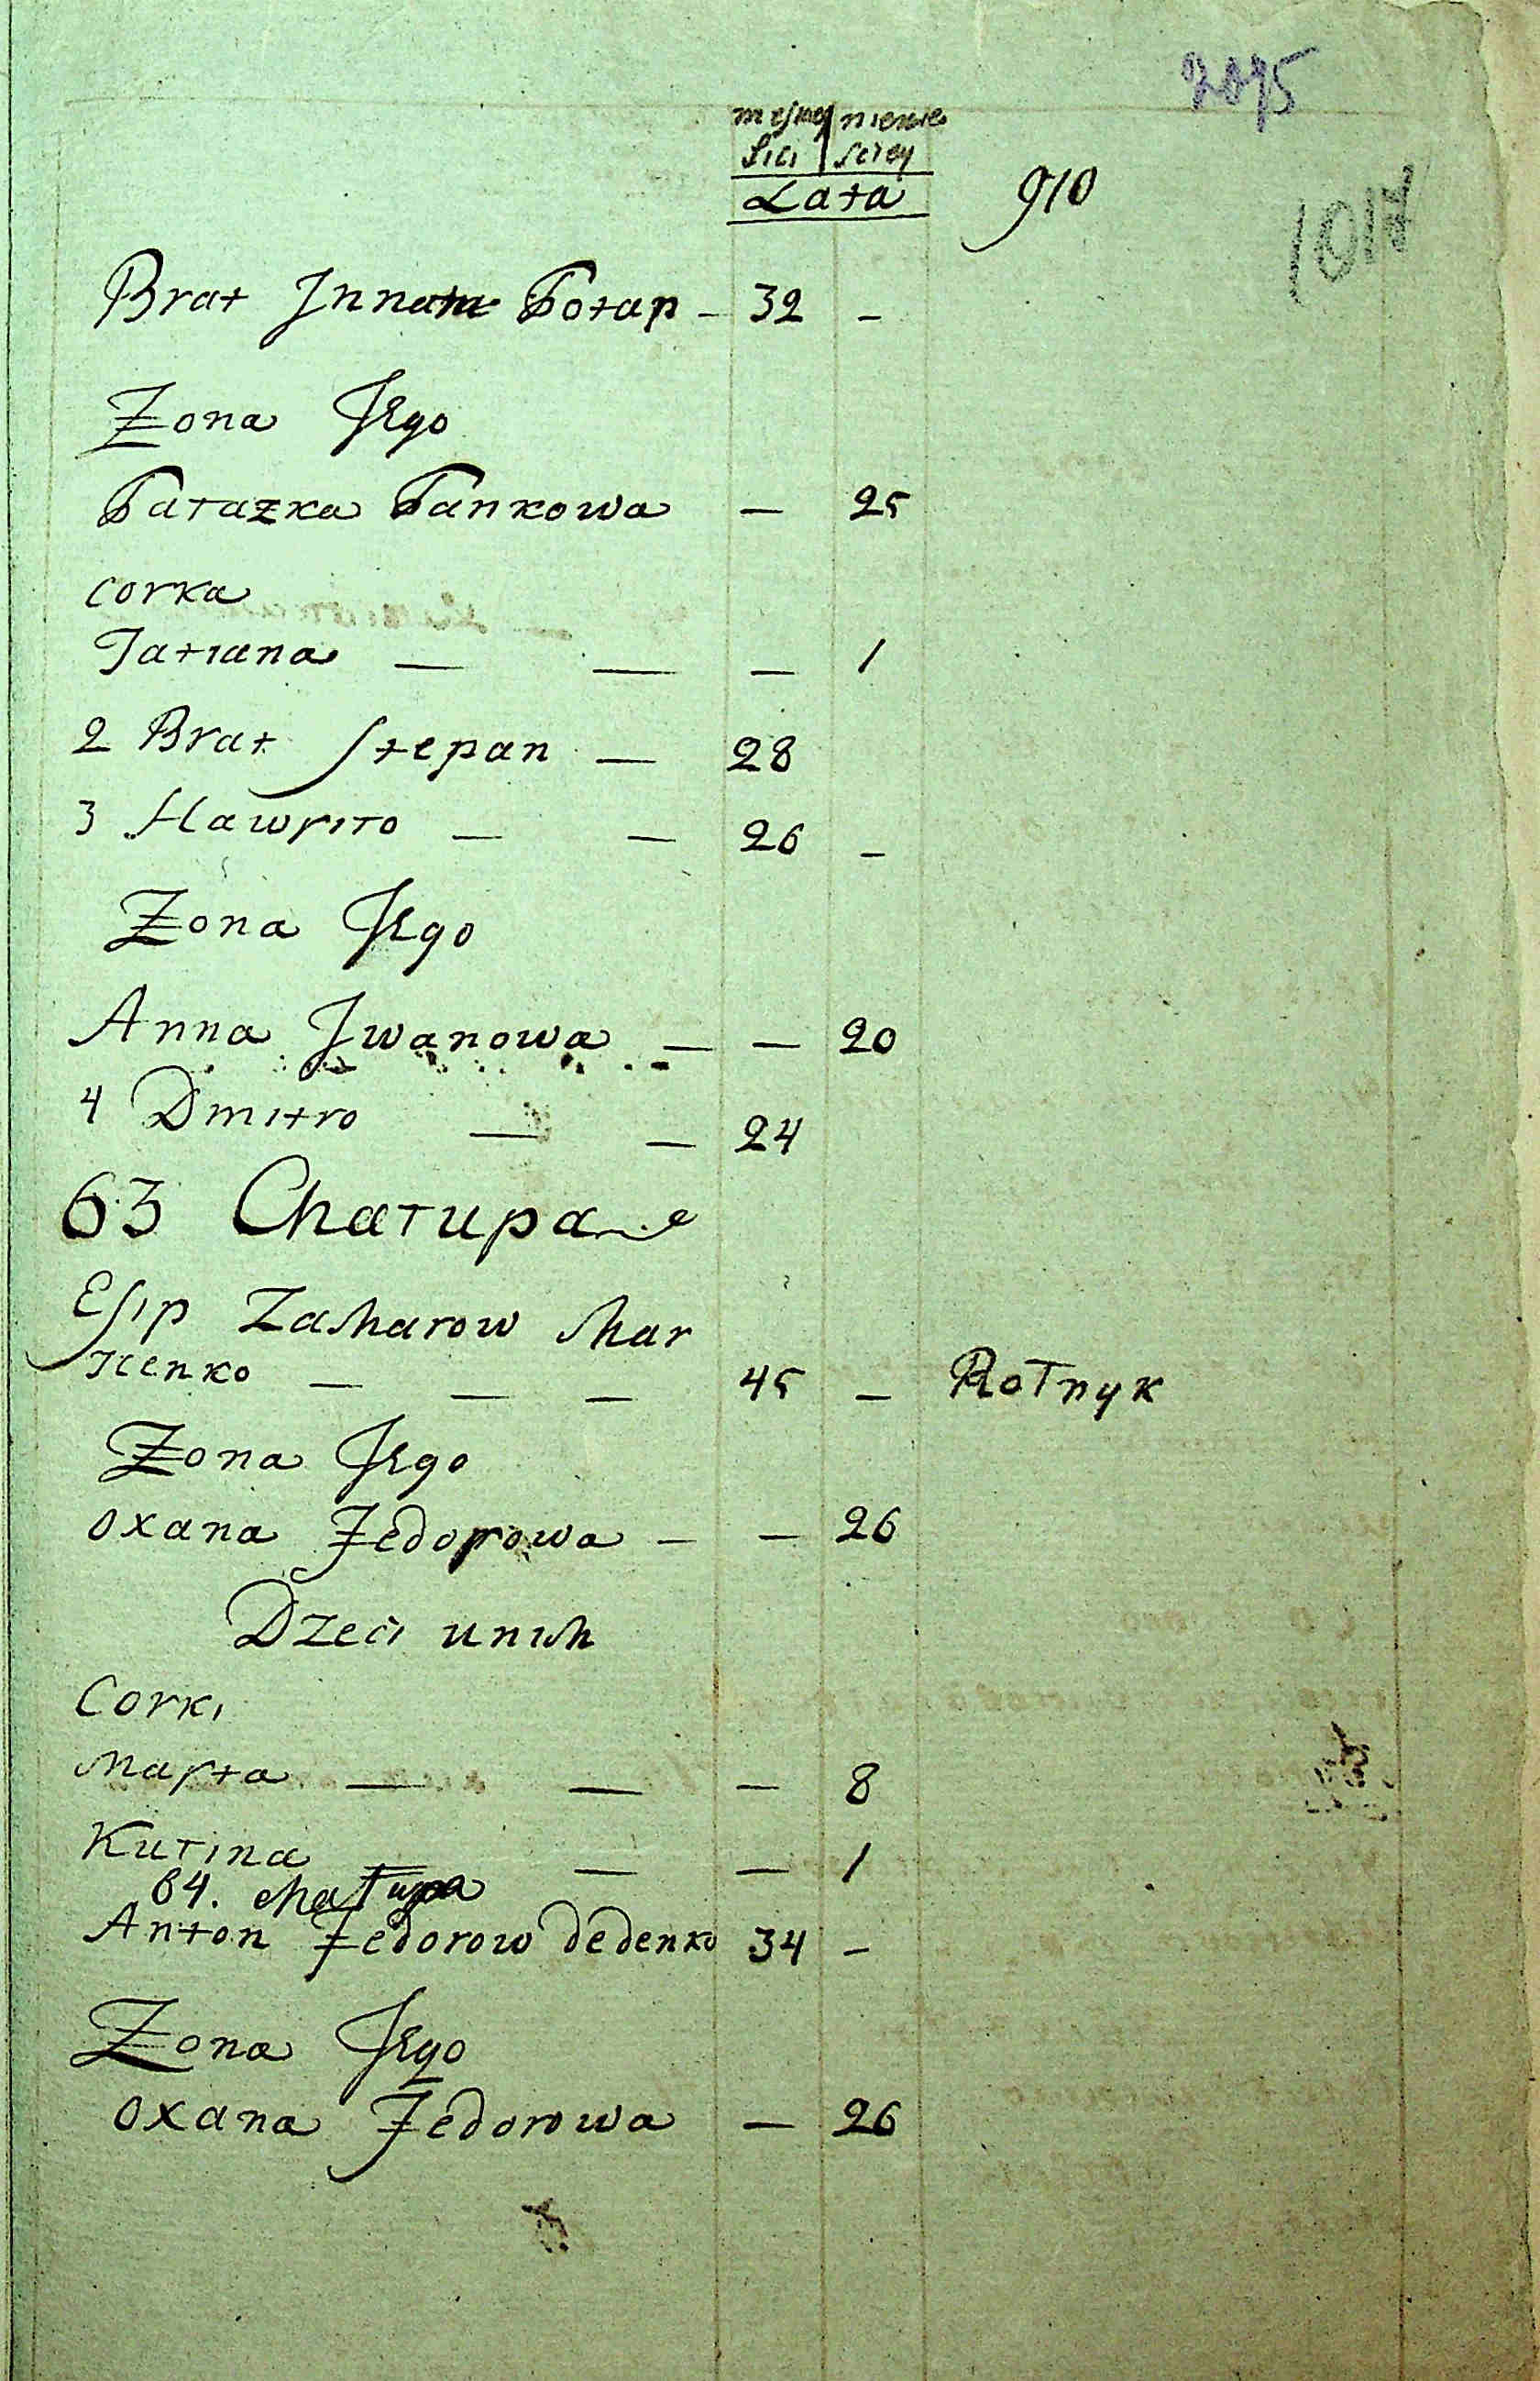 910
Lata
Brat Potap - 32 -
Zona Jego
Pałazka Pankowa — 25
corka
Tatiana — — — 1
2 Brat Stepan — 28
3 Hawryło — — 26 -
Zona Jego
Anna Jwanowa — — 20
4 Dmitro — — 24
63 Chałupa
Esip Zacharow Char
czenko — — — 45 - Rolnyk
Zona Jego
oxana Fedorowa - — 26
Dzeci unich
Corki
Marta — — — 8
Kulina — — 1
64. chałupa
Anton Fedorow dedenko 34 -
Zona Jego
oxana Fedorowa — 26